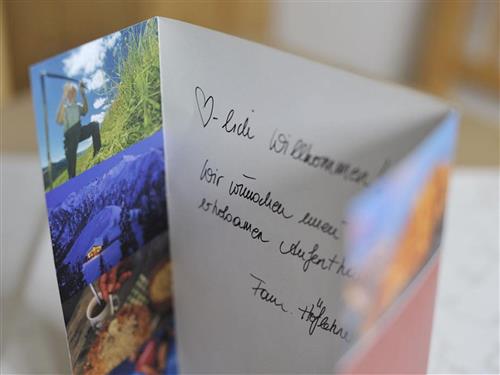 ♡-lich Willkommen
Wir wünschen einen
erholsamen Aufenthal
Fam. Höflehne